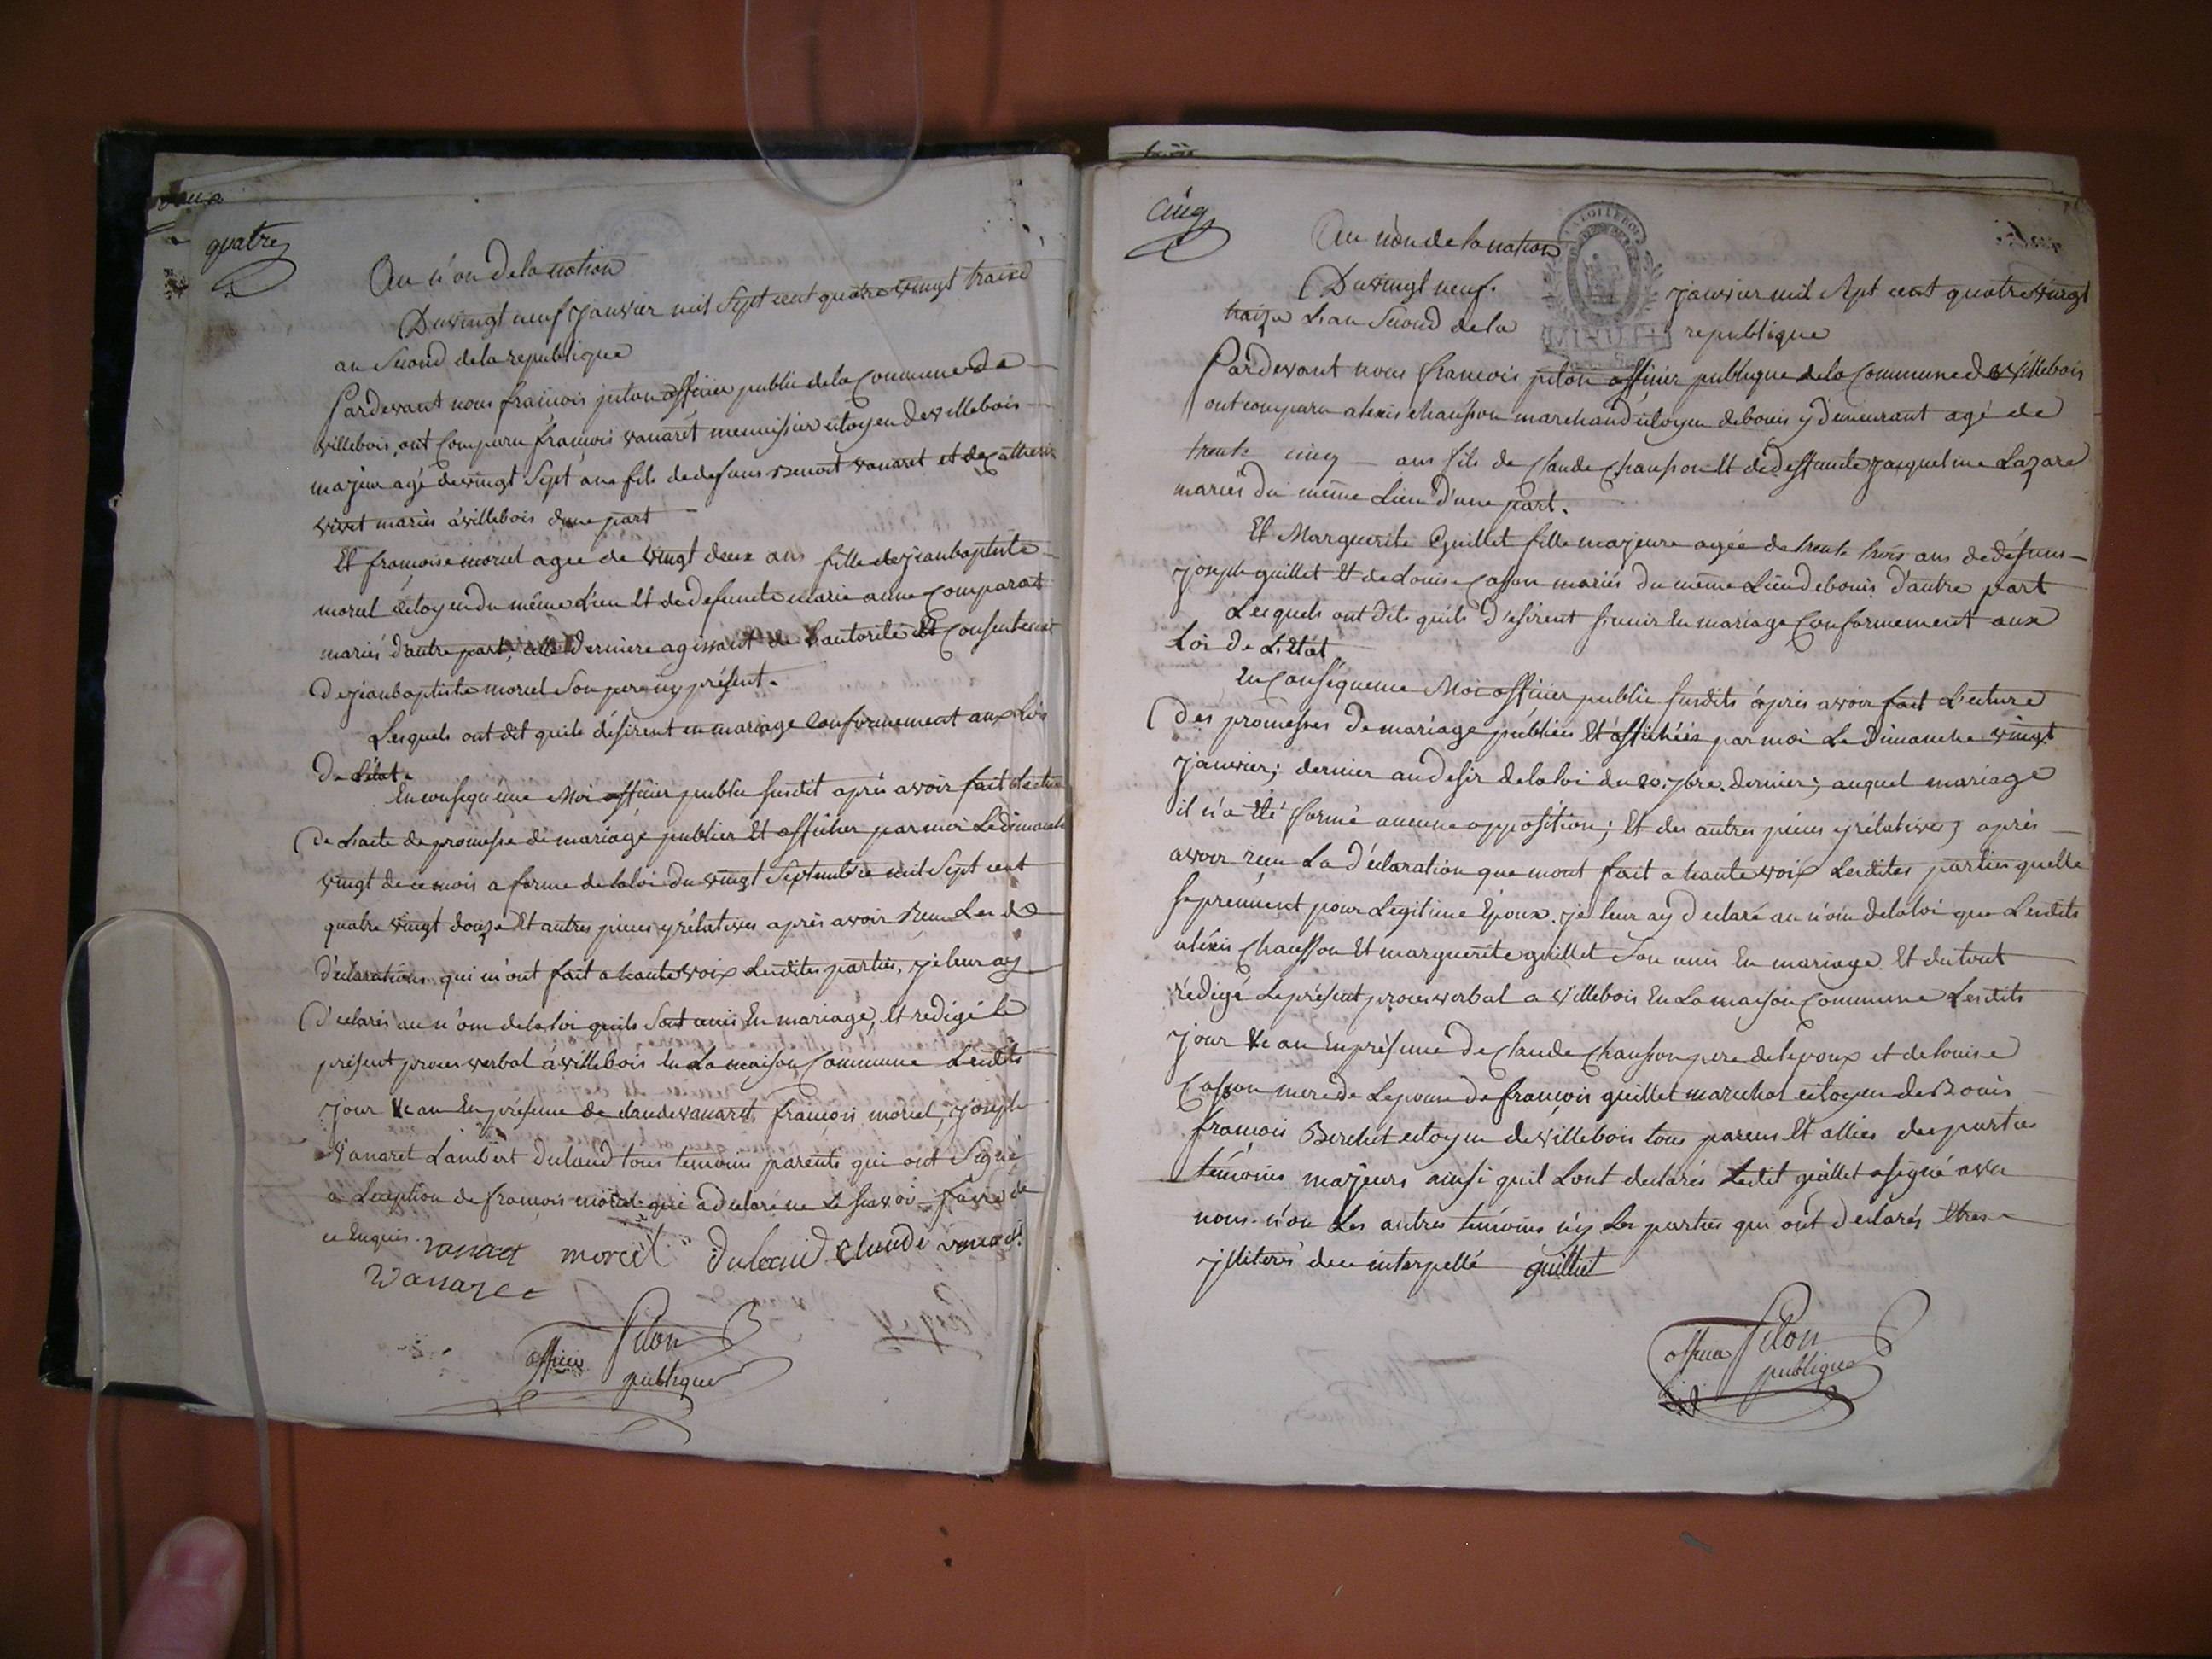 quatre
Au n'om de la nation
Du vingt neuf janvier mil sept cent quatre vingt traize
an second de la republique
Pardevant nous francois piton officier public de la Commune de
villebois, ont Comparu francois vanaret menuisier citoyen de villebois
majeur agé de vingt sept ans fils de defunt Benoit vanaret et de Catherine
vivet mariés à villebois d'une part
Et francoise morel agee de vingt deux ans fille de jean baptiste
morel citoyen du même Lieu Et de defuncte marie anne Comparat
mariés d'autre part, cette derniere agissant de L'autorité Et Consentement
de jean baptiste morel Son pere icy présent.
Lesquels ont dit quils désirent en mariage Conformement aux Lois
de L'état.
En consequence Moi officier public susdit après avoir fait Lecture
de L'acte de promesse de mariage publier Et afficher par moi Le dimanche
vingt de ce mois a forme de la loi du vingt Septembre mil Sept cent
quatre vingt douze Et autres pieces y rélatives après avoir Reçu Les de
d'éclarations qui m'ont fait a haute voix Lesdites parties, je leur ay
d'eclarés au n'om de la loi quils Sont unis En mariage, Et redigé le
présent proces verbal à villebois En La maison Commune Lesdits
jour Et an En présence de claude vanaret, francois morel, joseph
vanaret Lambert duland tous temoins parents qui ont Signé
à L'exception de francois morel qui a declaré ne Le scavoir faire de
ce Enquis. vanaret morel duland claude vanaret
vanaret
Piton
officier publique
cinq
Au n'om de la nation
Du vingt neuf janvier mil Sept cent quatre vingt
traize L'an Second de la republique
MINUTE
Pardevant nous francois piton officier publique de la Commune de villebois
ont comparu alexis chausson marchand citoyen de bouis y demeurant agé de
trente cinq ans fils de Claude Chausson Et de deffuncte jacqueline Lazare
mariés du même Lieu d'une part.
Et Marguerite Guillet fille majeure agée de trente trois ans de défunt
joseph guillet Et de Louise Casson mariés du même Lieu de bouis d'autre part
Lesquels ont dits quils d'esirent s'unir En mariage Conformement aux
Loi de L'Etat
En Conséquence Moi officier public susdits après avoir fait L'ecture
des promesses de mariage publiées Et affichées par moi Le dimanche vingt
janvier; dernier au desir de la loi du 20. 7bre. dernier; auquel mariage
il n'a Eté formé aucune opposition; Et des autres pieces y rélatives; après
avoir reçu La d'éclaration que mont fait a haute voix Lesdites parties quelle
se prennent pour Legitime Epoux. je leur ay d'eclaré au n'om de la loi que Lesdits
aléxis Chausson Et marguerite guillet Son unis En mariage. Et du tout
rédigé Le présent proces verbal a villebois En La maison Commune Lesdits
jour Et an En présence de Claude Chausson pere de lepoux et de louise
Casson mere de Lepouse de francois guillet marechal citoyen de Bouis
francois Berchet citoyen de villebois tous parens Et allies des parties
temoins majeurs ainsi quil Lont declarés Ledit guillet a signé avec
nous n'on Les autres temoins n'y Les parties qui ont declarés Etre
jlliteres de ce interpellé guillet
Piton
officier publique